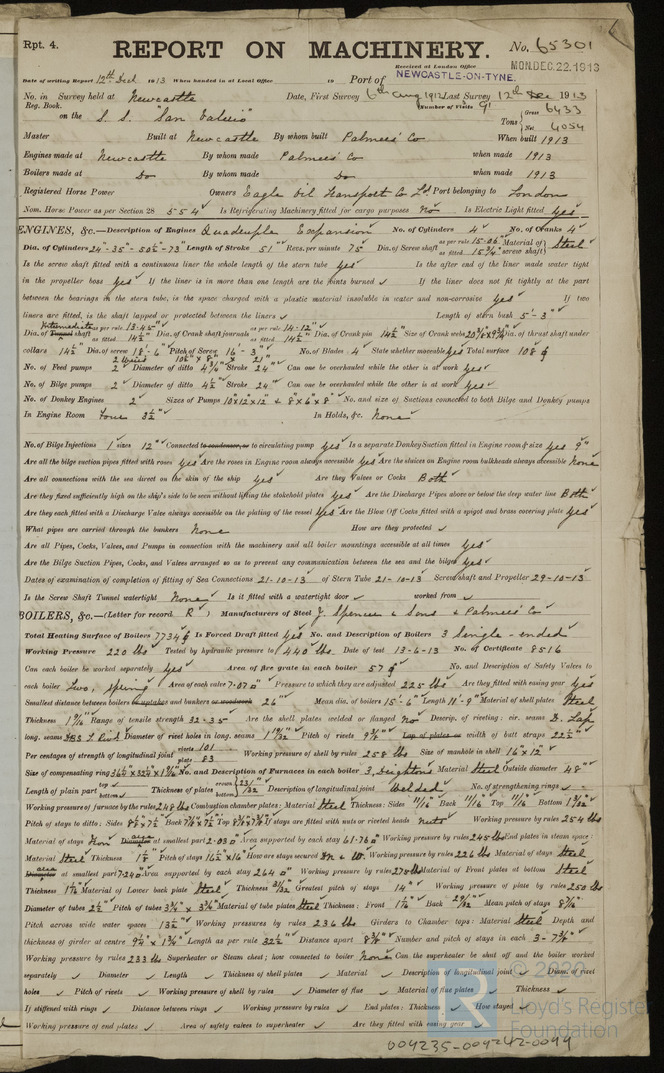 Rpt. 4.
REPORT ON MACHINERY.
No. 65301
Received at London Office
MON. DEC. 22. 1913
Date of writing Report 12th Dec 1913 When handed in at Local Office 19 Port of NEWCASTLE-ON-TYNE.
No. in Survey held at Newcastle Date, First Survey 6th Aug 1912 Last Survey 12th Dec 1913
Reg. Book. (Number of Visits 91
on the S. S. "San Valerio" Tons { Gross 6433 Net 4054
Master Built at Newcastle By whom built Palmers' Co When built 1913
Engines made at Newcastle By whom made Palmers' Co when made 1913
Boilers made at Do By whom made Do when made 1913
Registered Horse Power Owners Eagle Oil Transport Co Ld Port belonging to London
Nom. Horse Power as per Section 28 554 Is Refrigerating Machinery fitted for cargo purposes No Is Electric Light fitted Yes
ENGINES, &c.—Description of Engines Quadruple Expansion No. of Cylinders 4 No. of Cranks 4
Dia. of Cylinders 24"-35"-50½"-73" Length of Stroke 51" Revs. per minute 75 Dia. of Screw shaft as per rule 15.06" as fitted 15¾" Material of screw shaft } Steel
Is the screw shaft fitted with a continuous liner the whole length of the stern tube Yes Is the after end of the liner made water tight
in the propeller boss Yes If the liner is in more than one length are the joints burned ✓ If the liner does not fit tightly at the part
between the bearings in the stern tube, is the space charged with a plastic material insoluble in water and non-corrosive Yes If two
liners are fitted, is the shaft lapped or protected between the liners ✓ Length of stern bush 5'-3"
Dia. of Tunnel Intermediate shaft as per rule 13.45" as fitted 14½" Dia. of Crank shaft journals as per rule 14.12" as fitted 14½" Dia. of Crank pin 14½" Size of Crank webs Dia. of thrust shaft under
collars 14½" Dia. of screw 18'-6" Pitch of Screw 16'-3" No. of Blades 4 State whether moveable Yes Total surface 108
No. of Feed pumps 2 Diameter of ditto Stroke Can one be overhauled while the other is at work Yes
No. of Bilge pumps 2 Diameter of ditto 4½" Stroke 24" Can one be overhauled while the other is at work Yes
No. of Donkey Engines 2 Sizes of Pumps 10"x12"x12" & 8"x6"x8" No. and size of Suctions connected to both Bilge and Donkey pumps
In Engine Room Four 3½" In Holds, &c. None
No. of Bilge Injections 1 sizes 12" Connected to condenser, or to circulating pump Yes Is a separate Donkey Suction fitted in Engine room & size Yes 9"
Are all the bilge suction pipes fitted with roses Yes Are the roses in Engine room always accessible Yes Are the sluices on Engine room bulkheads always accessible None
Are all connections with the sea direct on the skin of the ship Yes Are they Valves or Cocks Both
Are they fixed sufficiently high on the ship's side to be seen without lifting the stokehold plates Yes Are the Discharge Pipes above or below the deep water line Both
Are they each fitted with a Discharge Valve always accessible on the plating of the vessel Yes Are the Blow Off Cocks fitted with a spigot and brass covering plate Yes
What pipes are carried through the bunkers None How are they protected ✓
Are all Pipes, Cocks, Valves, and Pumps in connection with the machinery and all boiler mountings accessible at all times Yes
Are the Bilge Suction Pipes, Cocks, and Valves arranged so as to prevent any communication between the sea and the bilges Yes
Dates of examination of completion of fitting of Sea Connections 21-10-13 of Stern Tube 21-10-13 Screw shaft and Propeller 29-10-13
Is the Screw Shaft Tunnel watertight None Is it fitted with a watertight door ✓ worked from ✓
BOILERS, &c.—(Letter for record R ) Manufacturers of Steel J. Spencer & Sons & Palmers' Co
Total Heating Surface of Boilers 7734 Is Forced Draft fitted Yes No. and Description of Boilers 3 Single-ended
Working Pressure 220 lbs Tested by hydraulic pressure to 440 lbs. Date of test 13-6-13 No. of Certificate 8516
Can each boiler be worked separately Yes Area of fire grate in each boiler 57 No. and Description of Safety Valves to
each boiler Two, spring Area of each valve 7.07 Pressure to which they are adjusted 225 lbs Are they fitted with easing gear Yes
Smallest distance between boilers or uptakes and bunkers or woodwork 26" Mean dia. of boilers 15'-6" Length 11'-9" Material of shell plates Steel
Thickness 1 9/16" Range of tensile strength 32-35 Are the shell plates welded or flanged No Descrip. of riveting: cir. seams D. Lap
long. seams Diameter of rivet holes in long. seams Pitch of rivets Lap of plates or width of butt straps 22½"
Per centages of strength of longitudinal joint rivets 101 plate 83 Working pressure of shell by rules 258 lbs Size of manhole in shell 16"x12"
Size of compensating ring No. and Description of Furnaces in each boiler 3, Deightons Material Steel Outside diameter 48"
Length of plain part top ✓ bottom Thickness of plates crown bottom } 23/32" Description of longitudinal joint Welded No. of strengthening rings ✓
Working pressure of furnace by the rules 248 lbs Combustion chamber plates: Material Steel Thickness: Sides 11/16" Back 11/16" Top 11/16" Bottom
Pitch of stays to ditto: Sides Back Top If stays are fitted with nuts or riveted heads Nuts Working pressure by rules 254 lbs
Material of stays Iron Diameter area at smallest part 2.03 Area supported by each stay 61.76 Working pressure by rules 245 lbs End plates in steam space:
Material Steel Thickness Pitch of stays How are stays secured N & W. Working pressure by rules 226 lbs Material of stays Steel
Diameter area at smallest part Area supported by each stay 264 Working pressure by rules 270 lbs Material of Front plates at bottom Steel
Thickness Material of Lower back plate Steel Thickness Greatest pitch of stays 14" Working pressure of plate by rules 250 lbs
Diameter of tubes 2½" Pitch of tubes 3¾" x 3¾" Material of tube plates Steel Thickness: Front Back Mean pitch of stays
Pitch across wide water spaces 13½" Working pressures by rules 236 lbs Girders to Chamber tops: Material Steel Depth and
thickness of girder at centre Length as per rule Distance apart Number and pitch of stays in each
Working pressure by rules 233 lbs Superheater or Steam chest; how connected to boiler None Can the superheater be shut off and the boiler worked
separately ✓ Diameter ✓ Length ✓ Thickness of shell plates ✓ Material ✓ Description of longitudinal joint ✓ Diam. of rivet
holes ✓ Pitch of rivets ✓ Working pressure of shell by rules ✓ Diameter of flue ✓ Material of flue plates ✓ Thickness ✓
If stiffened with rings ✓ Distance between rings ✓ Working pressure by rules ✓ End plates: Thickness ✓ How stayed
Working pressure of end plates ✓ Area of safety valves to superheater ✓ Are they fitted with easing gear ✓
© 2020
LR
Lloyd's Register
Foundation
004235-004242-0044